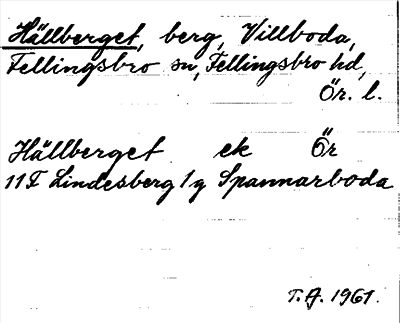 Hällberget, berg, Villboda,
Fellingsbro sn, Fellingsbro hd,
Ör. l.
Hällberget ek Ör
11F Lindesberg 1g Spannarboda
T.A. 1961.